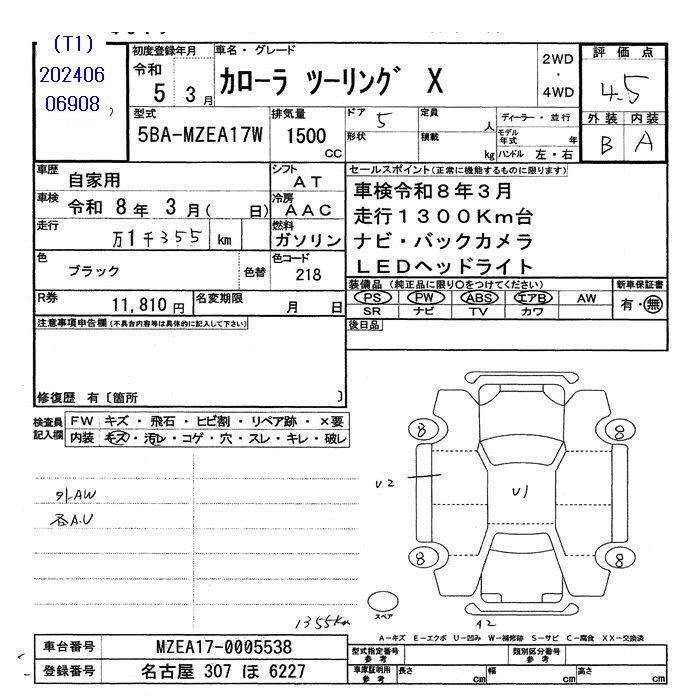 (T1)
202406
06908
初度登録年月
令和
5 3月
車名・グレード
カローラ ツーリング X
2WD
・
4WD
評価点
4.5
外装 内装
B A
型式
5BA-MZEA17W
排気量
1500
CC
ドア 5
形状
定員
人
積載
kg
ディーラー・並行
モデル年式 年
ハンドル 左・右
車歴
自家用
シフト
AT
車検
令和 8年 3月( 日)
冷房
AAC
走行
万1千355 km
燃料
ガソリン
色
ブラック
色替
色コード
218
R券
11,810円
名変期限
月 日
セールスポイント(正常に機能するものに限ります)
車検令和8年3月
走行1300Km台
ナビ・バックカメラ
LEDヘッドライト
装備品(純正品に限り○をつけてください)
PS PW ABS エアB AW
SR ナビ TV カワ
新車保証書
有・無
後日品
注意事項申告欄(不具合内容等は具体的に記入して下さい)
修復歴 有〔箇所 〕
検査員記入欄
FW キズ・飛石・ヒビ割・リペア跡・×要
内装 キズ・汚レ・コゲ・穴・スレ・キレ・破レ
外AW
各A.U
1355Km
8 8
U2
U1
8 8
スペア
A2
A―キズ E―エクボ U―凹み W―補修跡 S―サビ C―腐食 XX―交換済
車台番号
MZEA17-0005538
登録番号
名古屋 307 ほ 6227
型式指定番号
参考
類別区分番号
参考
車庫証明用
参考
長さ cm
幅 cm
高さ cm